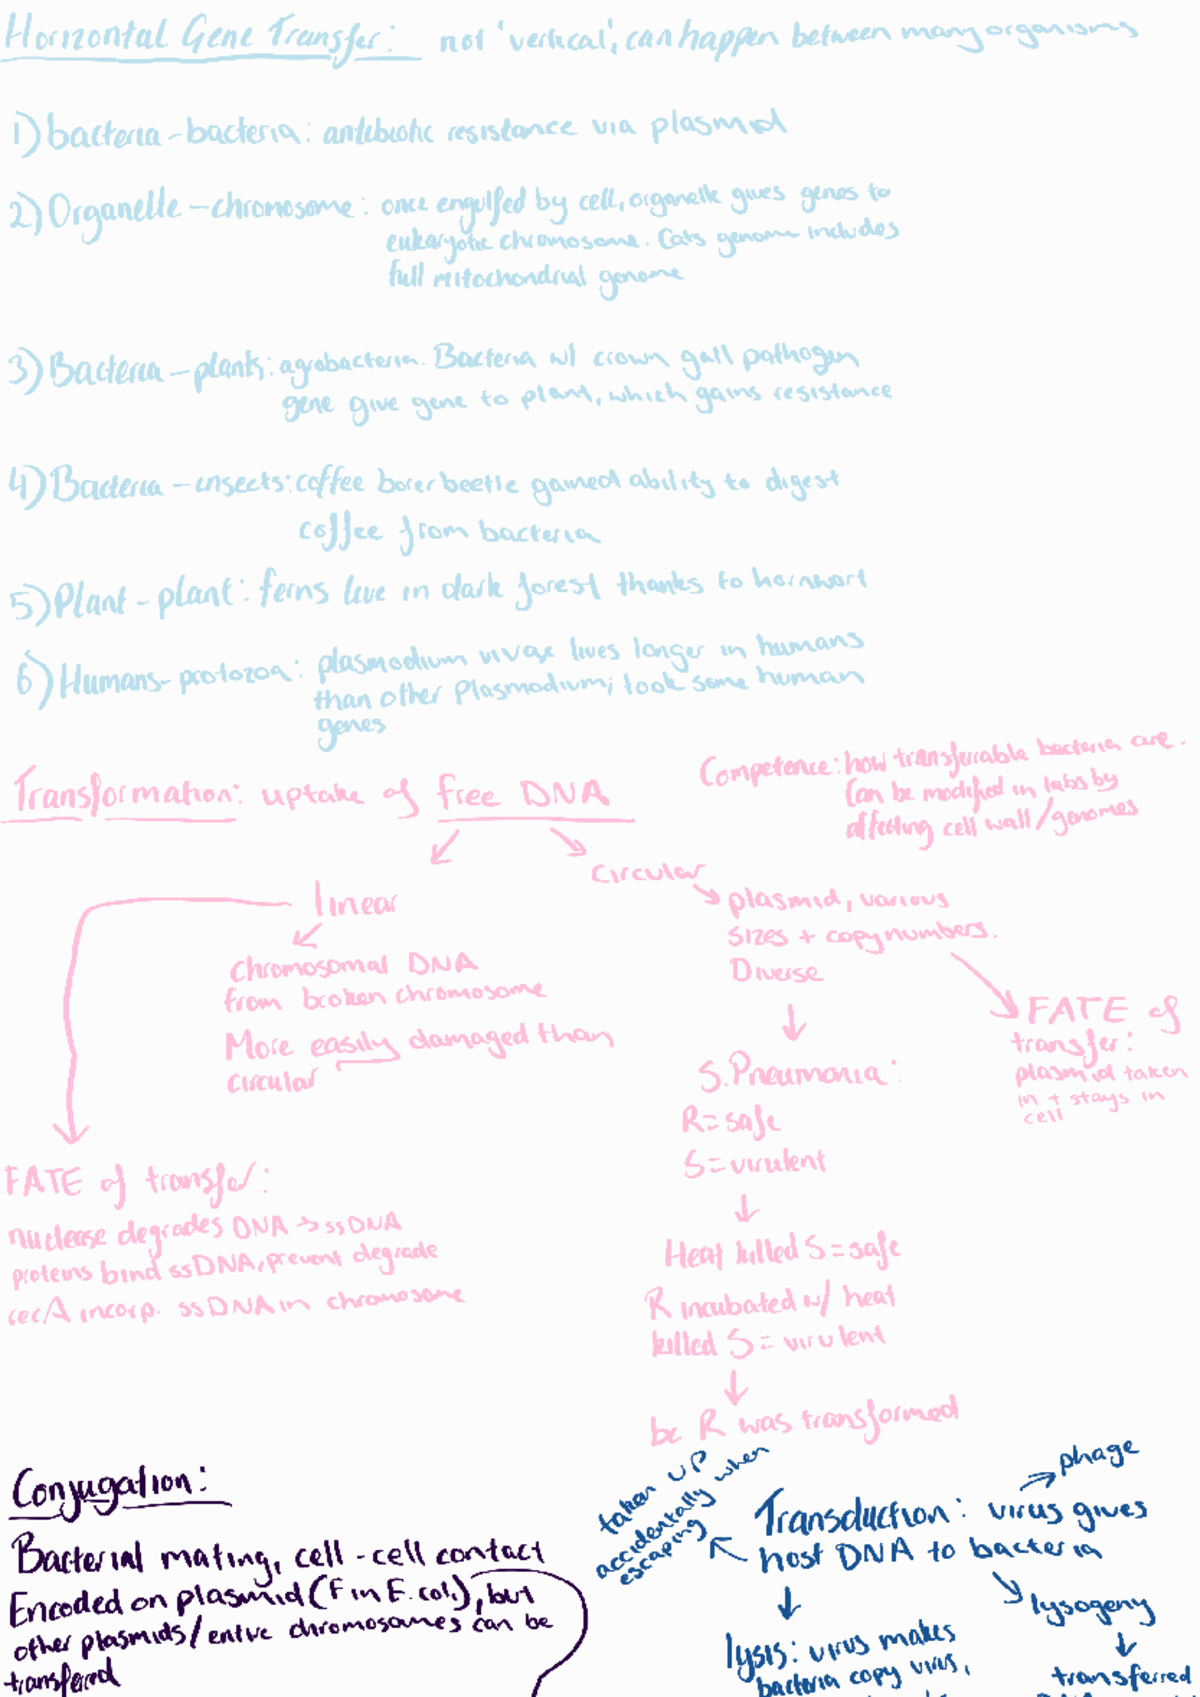 Horizontal Gene Transfer: not 'vertical', can happen between many organisms
1) bacteria - bacteria: antibiotic resistance via plasmid
2) Organelle - chromosome: once engulfed by cell, organelle gives genes to
eukaryotic chromosome. Cats genome includes
full mitochondrial genome
3) Bacteria - plants: agrobacteria. Bacteria w/ crown gall pathogen
gene give gene to plant, which gains resistance
4) Bacteria - insects: coffee borer beetle gained ability to digest
coffee from bacteria
5) Plant - plant: ferns live in dark forest thanks to hornwort
6) Humans - protozoa: plasmodium vivax lives longer in humans
than other Plasmodium; took some human
genes
Transformation: uptake of free DNA
Competence: how transferrable bacteria are.
Can be modified in labs by
affecting cell wall/genomes
linear
Chromosomal DNA
from broken chromosome
More easily damaged than
circular
FATE of transfer:
nuclease degrades DNA → ssDNA
proteins bind ssDNA, prevent degrade
recA incorp. ssDNA in chromosome
Circular
plasmid, various
sizes + copy numbers.
Diverse
FATE of
transfer:
plasmid taken
in + stays in
cell
S. Pneumonia:
R = safe
S = virulent
Heat killed S = safe
R incubated w/ heat
killed S = virulent
bc R was transformed
Conjugation:
Bacterial mating, cell - cell contact
Encoded on plasmid (F in E. coli), but
other plasmids/entire chromosomes can be
transferred
Transduction: virus gives
host DNA to bacteria
phage
taken up
accidentally when
escaping
lysis: virus makes
bacteria copy virus,
lysogeny
transferred